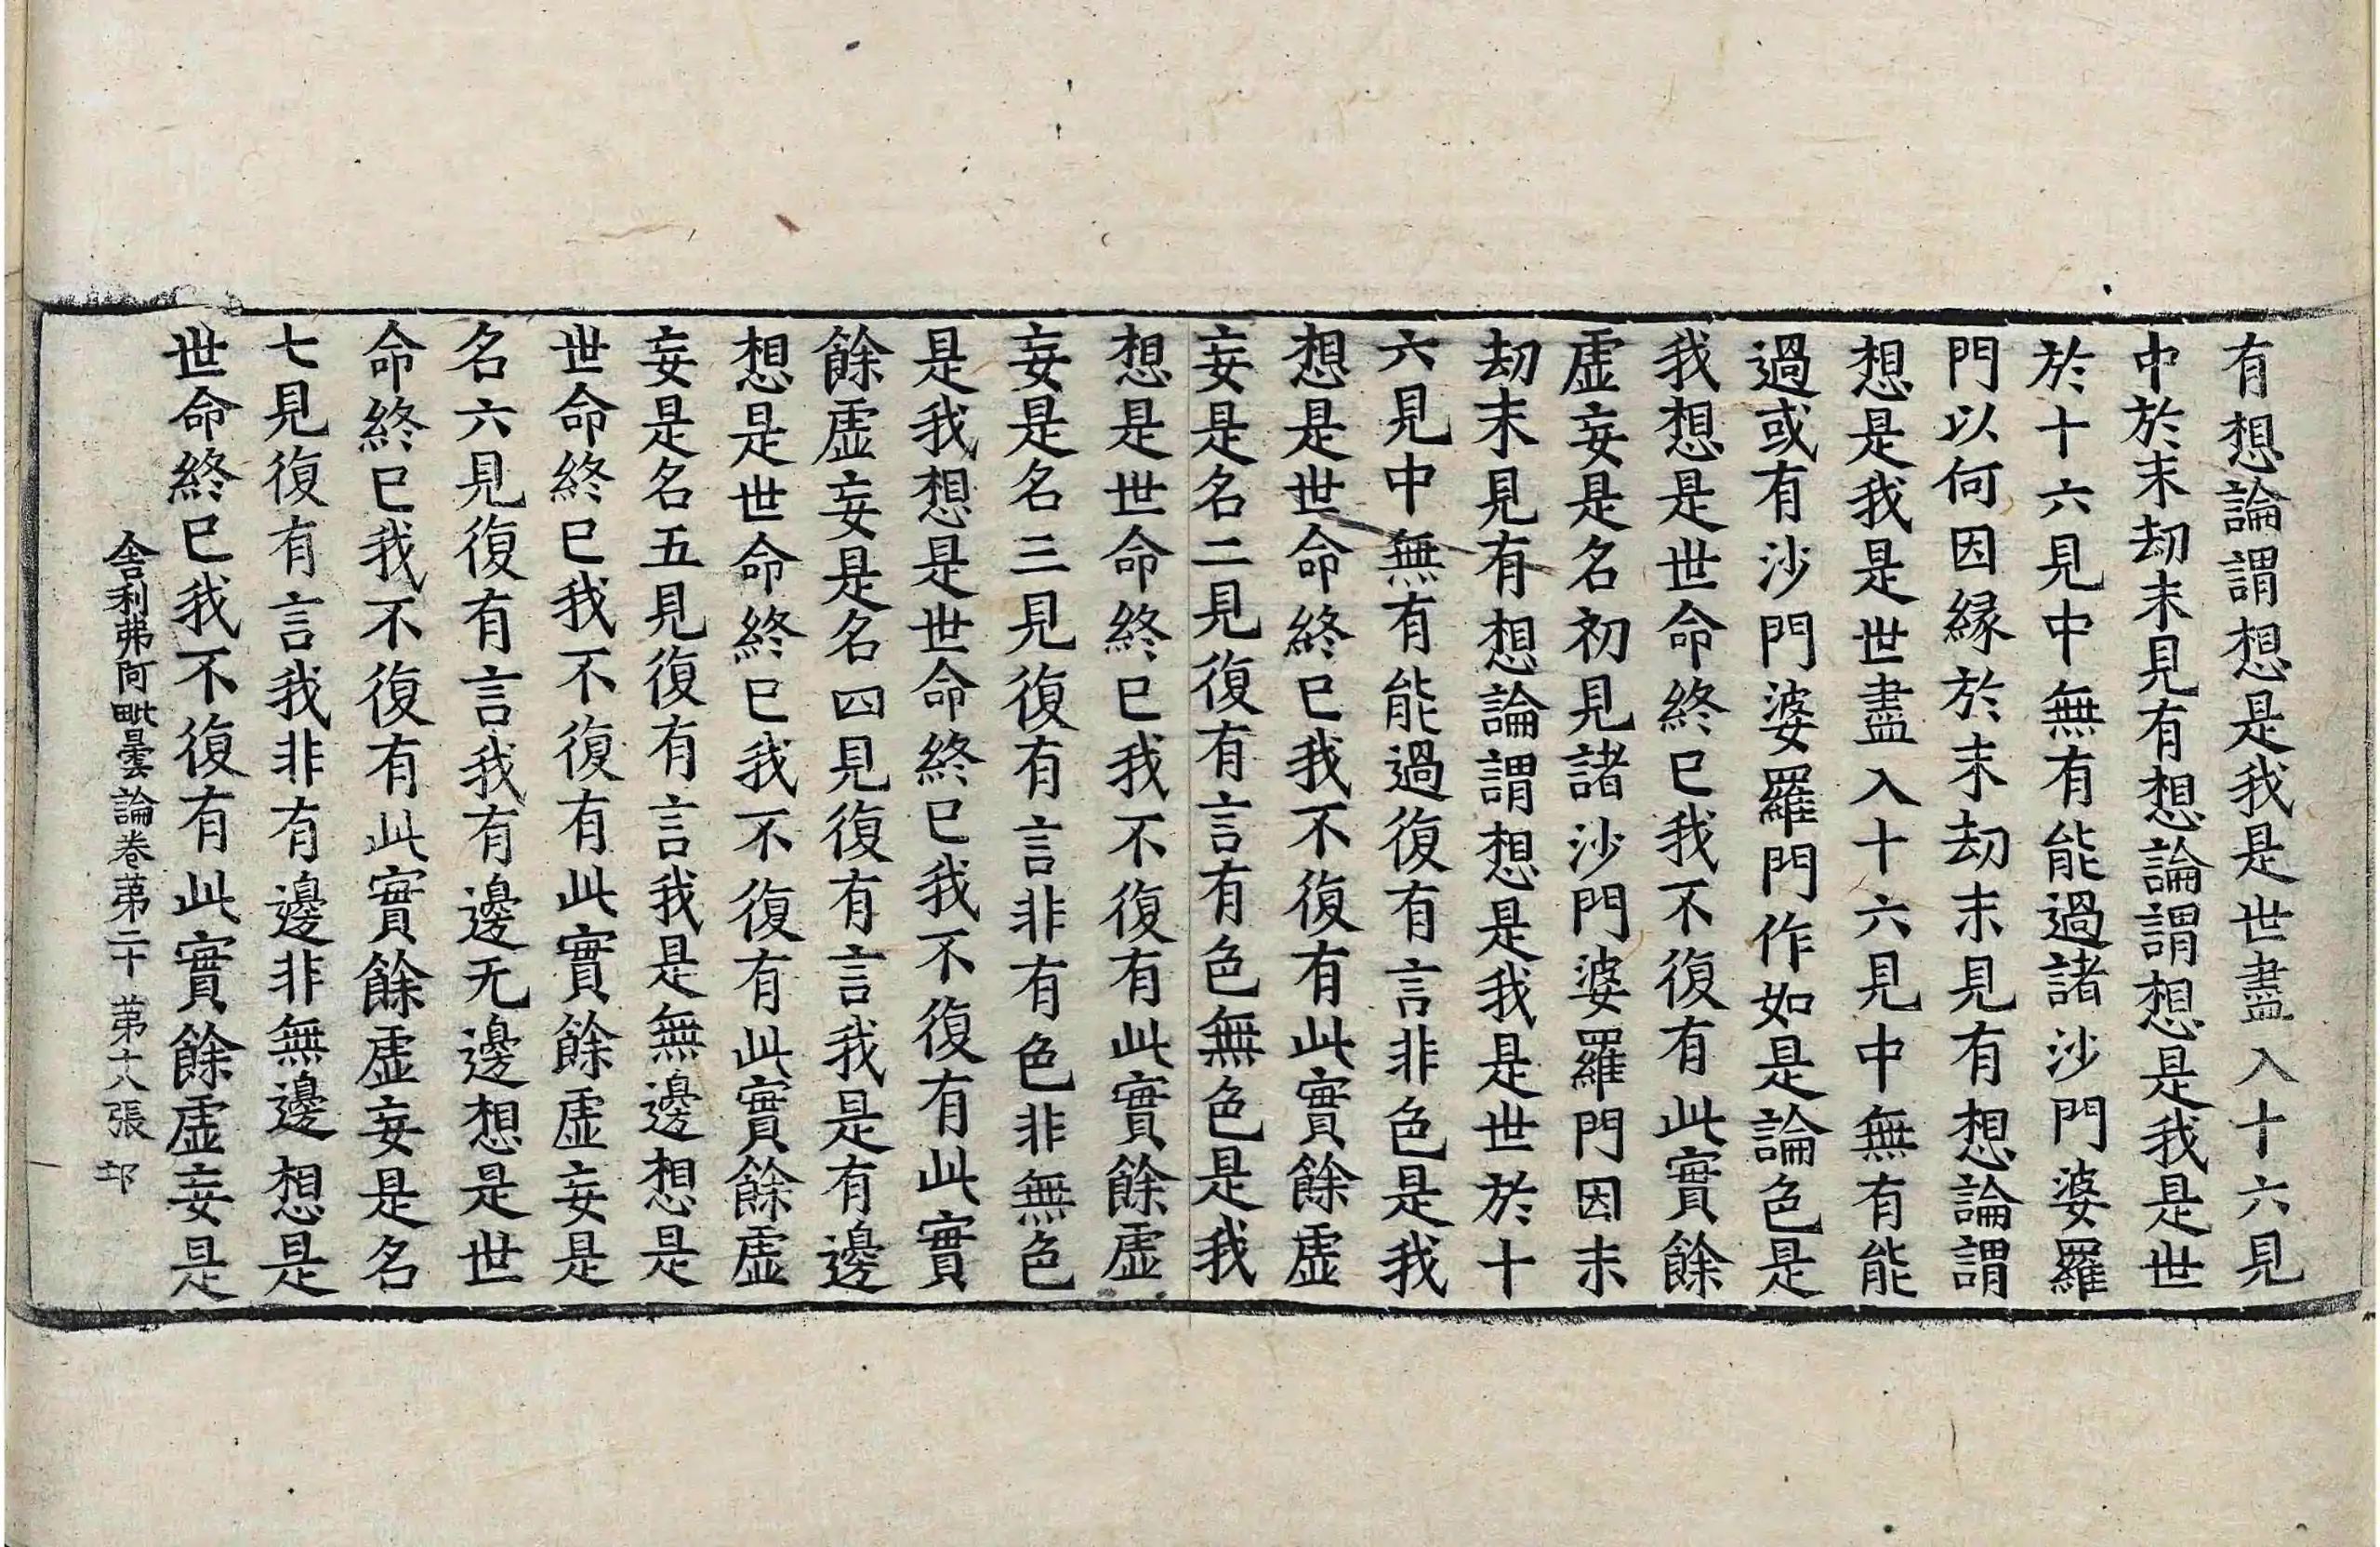 有想論謂想是我是世盡入十六見
中於末劫末見有想論謂想是我是世
於十六見中無有能過諸沙門婆羅
門以何因縁於末劫末見有想論謂
想是我是世盡入十六見中無有能
過或有沙門婆羅門作如是論色是
我想是世命終已我不復有此實餘
虛妄是名初見諸沙門婆羅門因末
劫末見有想論謂想是我是世於十
六見中無有能過復有言非色是我
想是世命終已我不復有此實餘虛
妄是名二見復有言有色無色是我
想是世命終已我不復有此實餘虛
妄是名三見復有言非有色非無色
是我想是世命終已我不復有此實
餘虛妄是名四見復有言我是有邊
想是世命終已我不復有此實餘虛
妄是名五見復有言我是無邊想是
世命終已我不復有此實餘虛妄是
名六見復有言我有邊无邊想是世
命終已我不復有此實餘虛妄是名
七見復有言我非有邊非無邊想是
世命終已我不復有此實餘虛妄是
舍利弗阿毗曇論卷苐二十 苐十八張 邙